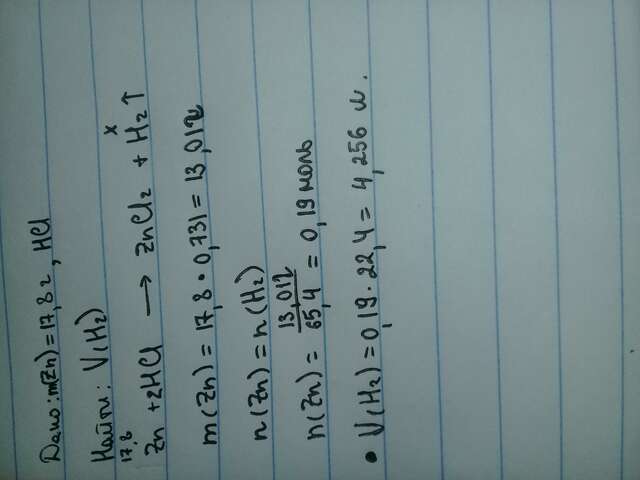 Дано: m(Zn) = 17,8 г, HCl
Найти: V(H₂)
17,8 x
Zn + 2HCl → ZnCl₂ + H₂↑
m(Zn) = 17,8 · 0,731 = 13,012
n(Zn) = n(H₂)
n(Zn) = 13,012 / 65,4 = 0,19 моль
• V(H₂) = 0,19 · 22,4 = 4,256 л.